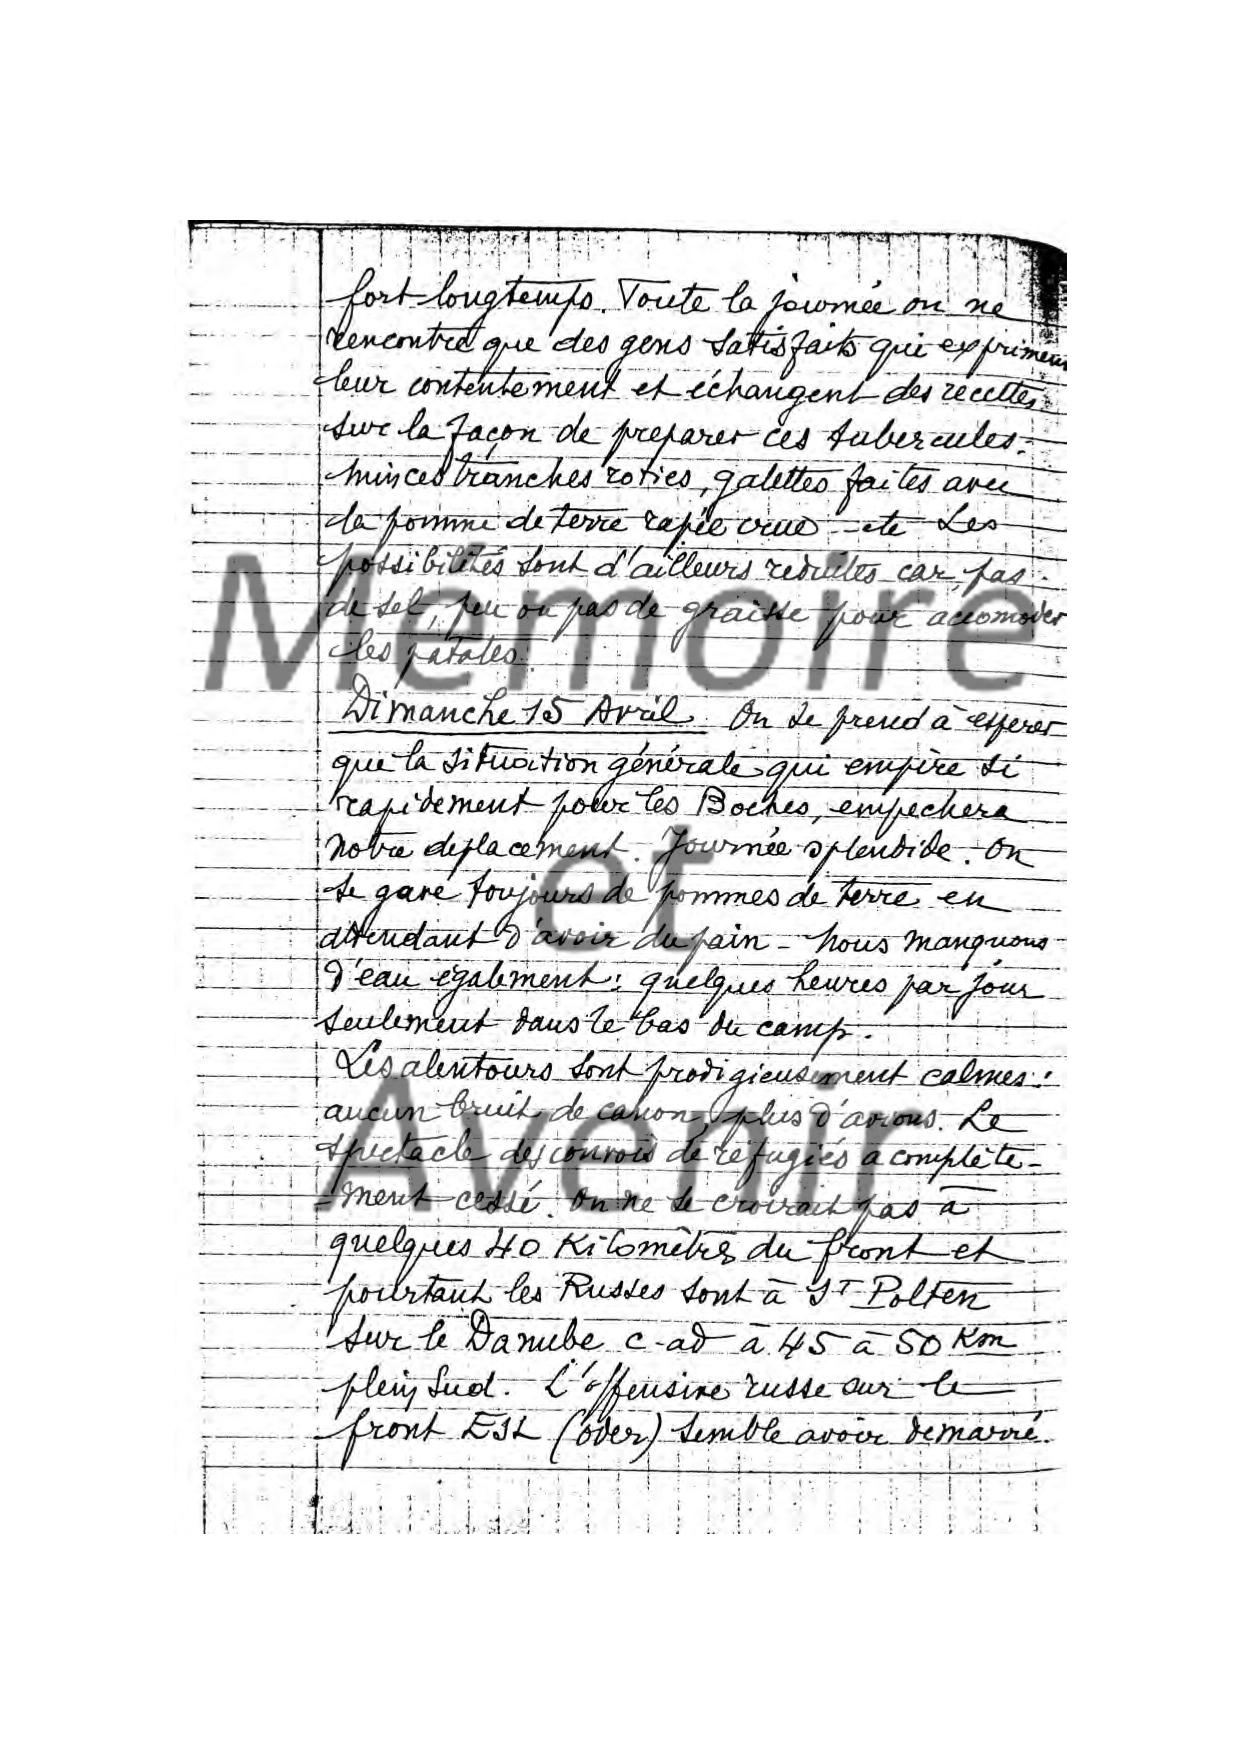 fort longtemps. Toute la journée on ne
rencontre que des gens satisfaits qui expriment
leur contentement et échangent des recettes
sur la façon de préparer ces tubercules.
minces tranches roties, galettes faites avec
de pomme de terre rapée crue - etc Les
possibilités sont d'ailleurs réduites car pas
de sel, peu ou pas de graisse pour accomoder
les patates.
Dimanche 15 Avril. On se prend à esperer
que la situation générale qui empire si
rapidement pour les Boches, empechera
notre déplacement. Journée splendide. On
se gave toujours de pommes de terre en
attendant d'avoir du pain - nous manquons
d'eau également : quelques heures par jour
seulement dans le bas du camp.
Les alentours sont prodigieusement calmes :
aucun bruit de canon, plus d'avions. Le
spectacle des convois de réfugiés a complète-
ment cessé. On ne se croirait pas à
quelques 40 Kilomètres du front et
pourtant les Russes sont à St Polten
sur le Danube c-ad à 45 à 50 Km
plein Sud. L'offensive russe sur le
front Est (oder) semble avoir demarré.
Mémoire
et
Avenir